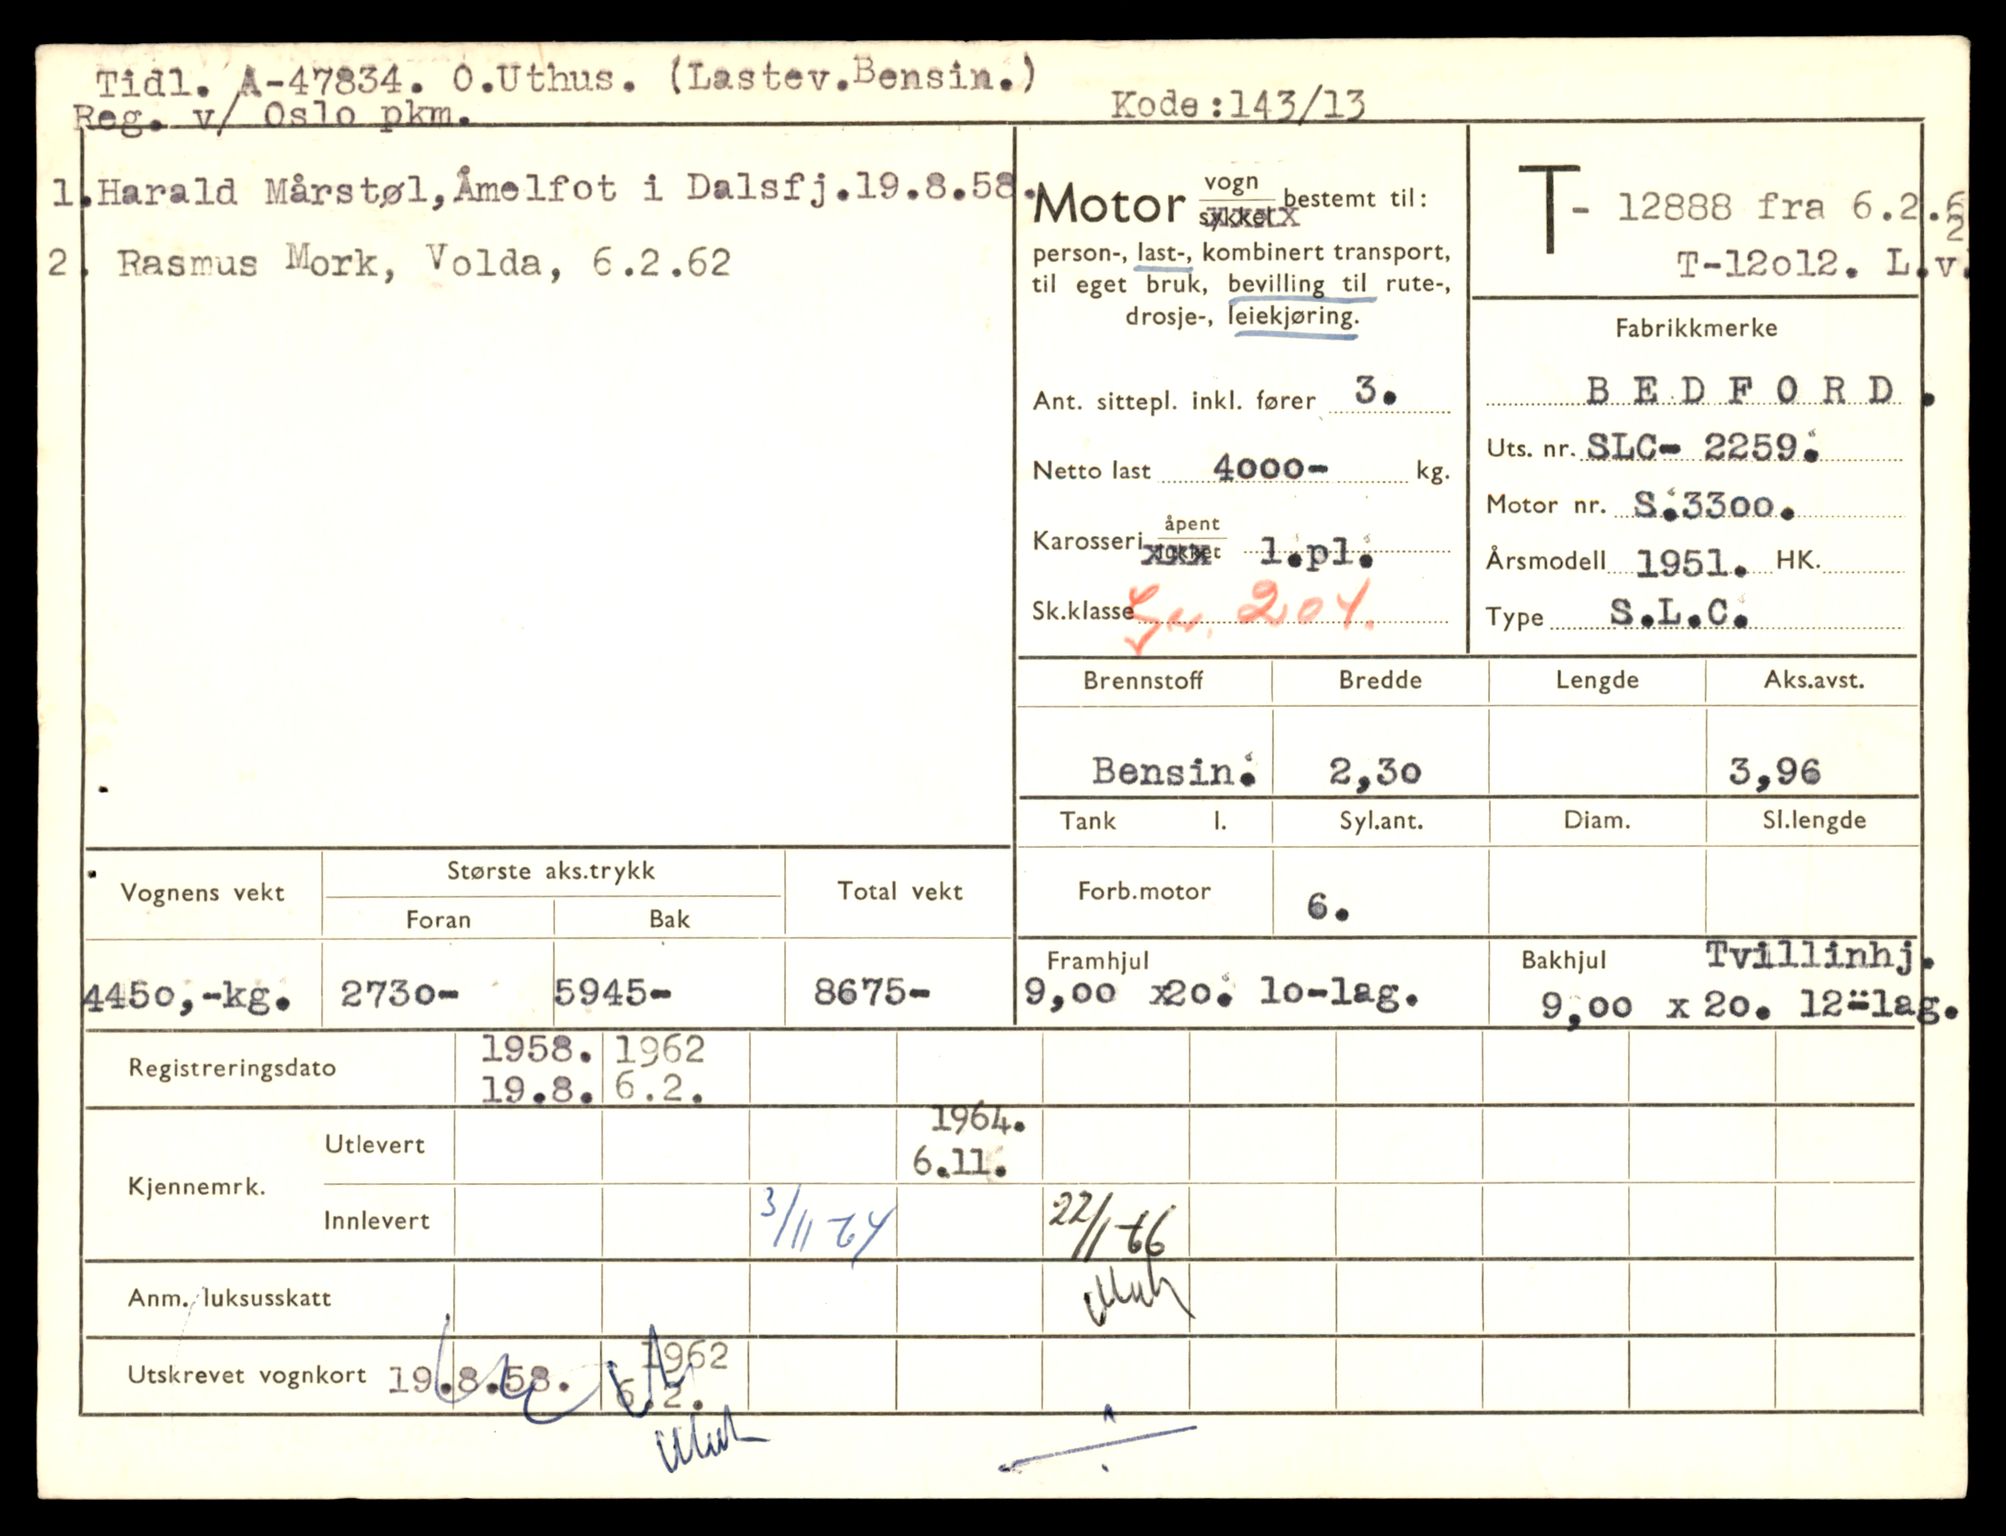 Tidl. A-47834. O.Uthus. (Lastev.Bensin.)
Reg. v/ Oslo pkm.
Kode:143/13
1.Harald Mårstøl,Åmelfot i Dalsfj.19.8.58.
2. Rasmus Mork, Volda, 6.2.62
Motor vogn sykkel bestemt til:
person-, last-, kombinert transport,
til eget bruk, bevilling til rute-,
drosje-, leiekjøring.
Ant. sittepl. inkl. fører 3.
Netto last 4000- kg.
Karosseri åpent lukket l.pl.
Sk.klasse 204.
T- 12888 fra 6.2.62
T-12012. L.v.
Fabrikkmerke
BEDFORD.
Uts. nr. SLC- 2259.
Motor nr. S.3300.
Årsmodell 1951. HK.
Type S.L.C.
Brennstoff Bredde Lengde Aks.avst.
Bensin. 2,30 3,96
Tank l. Syl.ant. Diam. Sl.lengde
Forb.motor 6.
Vognens vekt Største aks.trykk Total vekt
Foran Bak
4450,-kg. 2730- 5945- 8675-
Framhjul
9,00 x20. 10-lag.
Bakhjul Tvillinhj.
9,00 x 20. 12-lag.
Registreringsdato 1958. 1962
19.8. 6.2.
Kjennemrk.
Utlevert 1964.
6.11.
Innlevert 3/11-64 22/11-66
Anm. luksusskatt
Utskrevet vognkort 19.8.58. 1962
6.2.